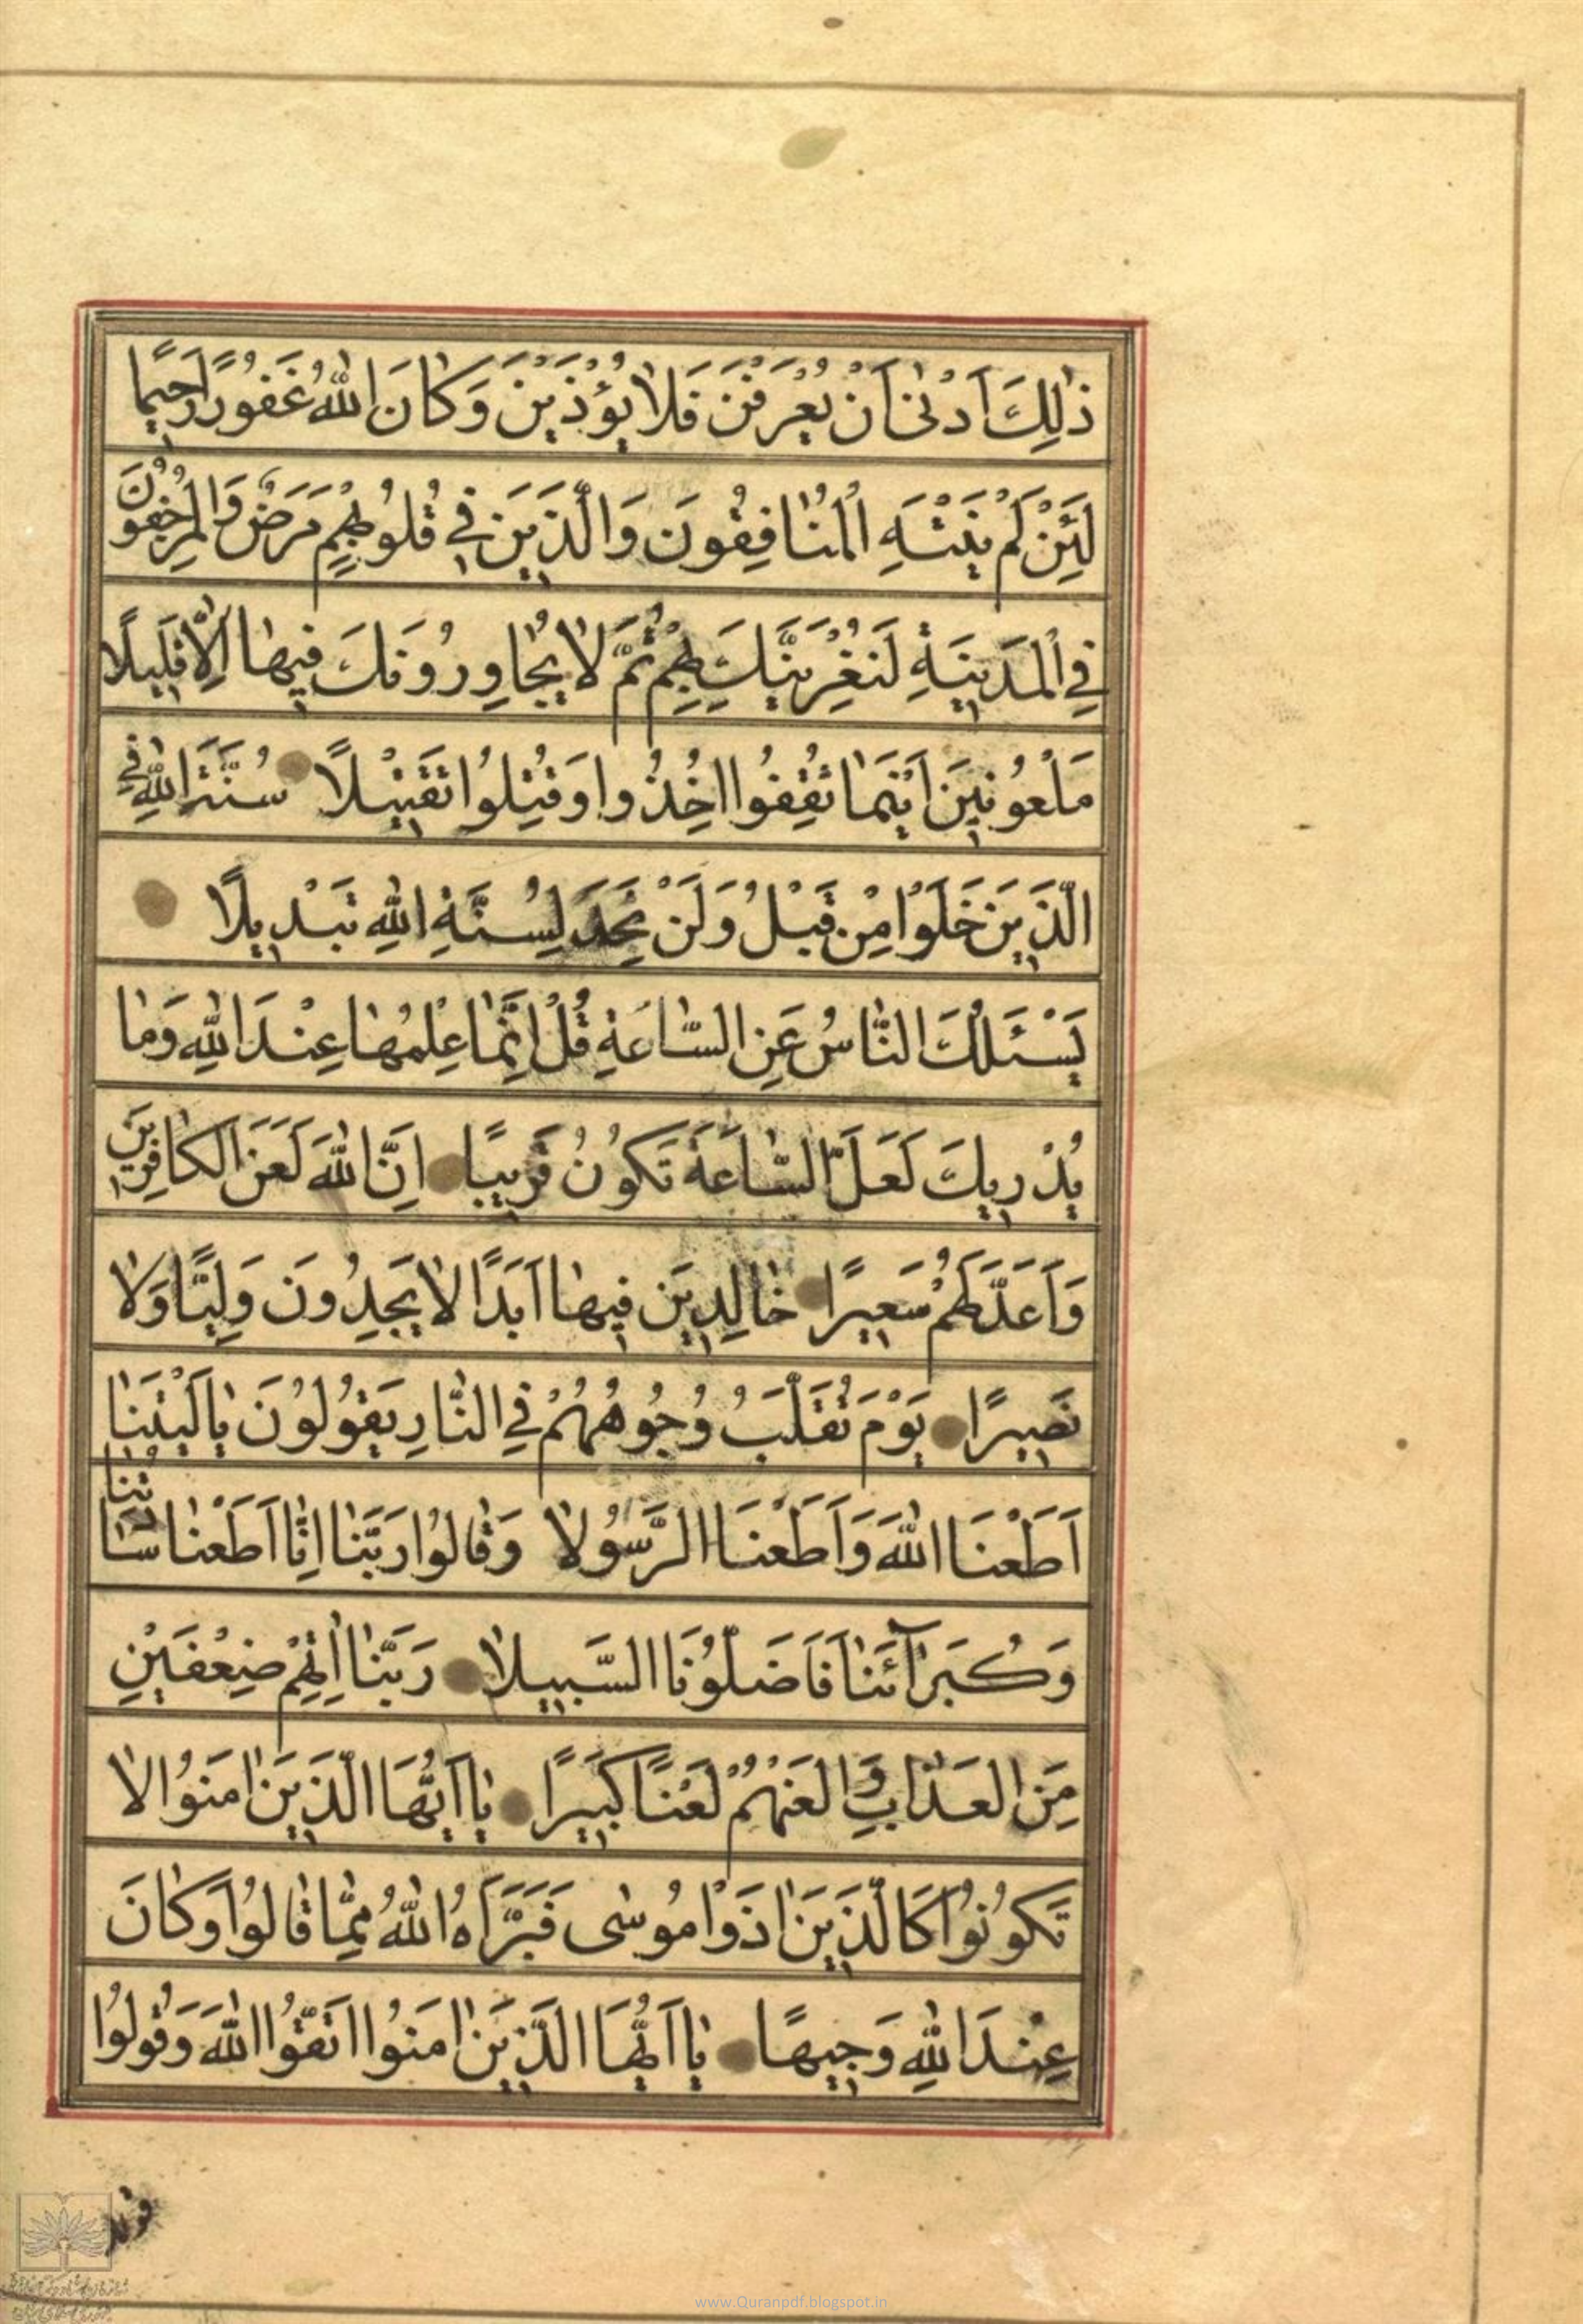 ذٰلِكَ اَدْنىٰ اَنْ يُعْرَفْنَ فَلاٰ يُؤْذَيْنَ وَكٰانَ اللّٰهُ غَفُورًا رَحيمًا
لَئِنْ لَمْ يَنْتَهِ الْمُنٰافِقُونَ وَالَّذينَ في قُلُوبِهِمْ مَرَضٌ وَالْمُرْجِفُونَ
فِي الْمَدينَةِ لَنُغْرِيَنَّكَ بِهِمْ ثُمَّ لاٰ يُجٰاوِرُونَكَ فيهٰا اِلاّٰ قَليلًا
مَلْعُونينَ اَيْنَمٰا ثُقِفُوا اُخِذُوا وَقُتِّلُوا تَقْتيلًا سُنَّةَ اللّٰهِ فِي
الَّذينَ خَلَوْا مِنْ قَبْلُ وَلَنْ تَجِدَ لِسُنَّةِ اللّٰهِ تَبْديلًا
يَسْئَلُكَ النّٰاسُ عَنِ السّٰاعَةِ قُلْ اِنَّمٰا عِلْمُهٰا عِنْدَ اللّٰهِ وَمٰا
يُدْريكَ لَعَلَّ السّٰاعَةَ تَكُونُ قَريبًا اِنَّ اللّٰهَ لَعَنَ الْكٰافِرينَ
وَاَعَدَّ لَهُمْ سَعيرًا خٰالِدينَ فيهٰا اَبَدًا لاٰ يَجِدُونَ وَلِيًّا وَلاٰ
نَصيرًا يَوْمَ تُقَلَّبُ وُجُوهُهُمْ فِي النّٰارِ يَقُولُونَ يٰا لَيْتَنٰا
اَطَعْنَا اللّٰهَ وَاَطَعْنَا الرَّسُولاٰ وَقٰالُوا رَبَّنٰا اِنّٰا اَطَعْنٰا سٰادَتَنٰا
وَكُبَرٰآئَنٰا فَاَضَلُّونَا السَّبيلاٰ رَبَّنٰا اٰتِهِمْ ضِعْفَيْنِ
مِنَ الْعَذٰابِ وَالْعَنْهُمْ لَعْنًا كَبيرًا يٰا اَيُّهَا الَّذينَ اٰمَنُوا لاٰ
تَكُونُوا كَالَّذينَ اٰذَوْا مُوسٰى فَبَرَّاَهُ اللّٰهُ مِمّٰا قٰالُوا وَكٰانَ
عِنْدَ اللّٰهِ وَجيهًا يٰا اَيُّهَا الَّذينَ اٰمَنُوا اتَّقُوا اللّٰهَ وَقُولُوا
www.Quranpdf.blogspot.in